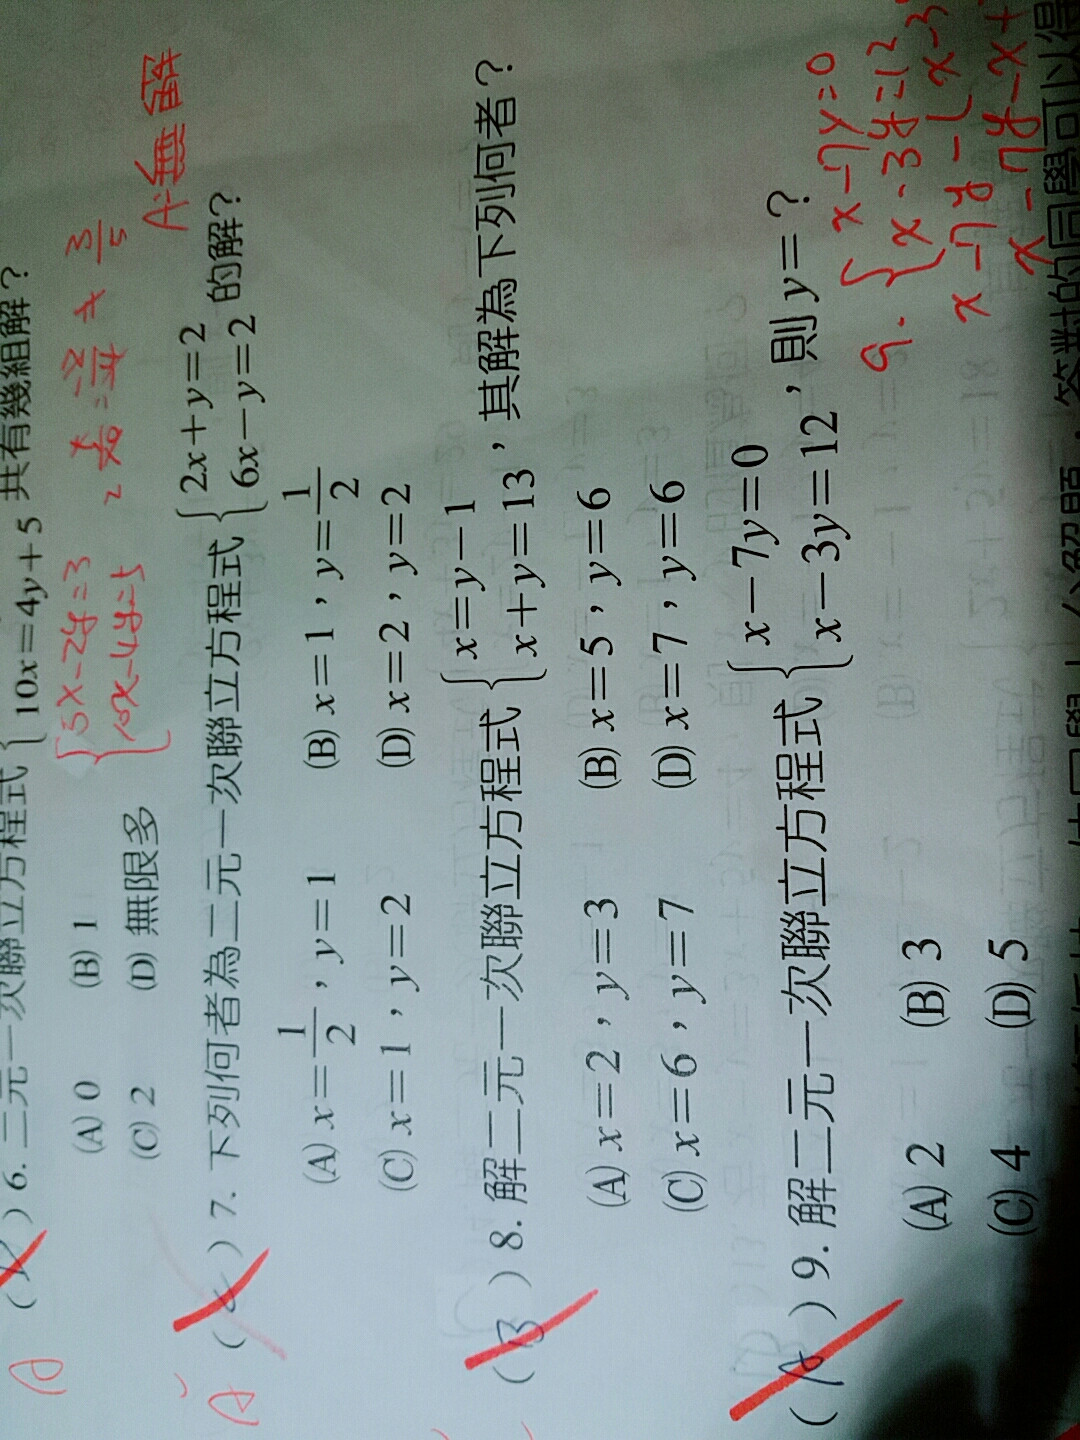 ) 6. 二元一次聯立方程式 { 10x=4y+5 共有幾組解？
(A) 0 (B) 1
(C) 2 (D) 無限多
{ 5x-2y=3
10x-4y=5
A:無解
A
( ) 7. 下列何者為二元一次聯立方程式 { 2x+y=2
6x-y=2 的解？
(A) x=1/2，y=1 (B) x=1，y=1/2
(C) x=1，y=2 (D) x=2，y=2
A
(B) 8. 解二元一次聯立方程式 { x=y-1
x+y=13，其解為下列何者？
(A) x=2，y=3 (B) x=5，y=6
(C) x=6，y=7 (D) x=7，y=6
(A) 9. 解二元一次聯立方程式 { x-7y=0
x-3y=12，則 y=？
(A) 2 (B) 3
(C) 4 (D) 5
9. { x-7y=0
x-3y=12
x-7y-(x-3
x-7y-x+